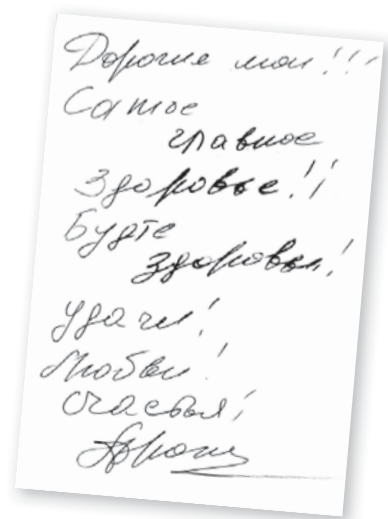 Дорогие мои!!!
Самое
главное
Здоровье!!
Будте
здоровы!
Удачи!
Любви!
Счастья!